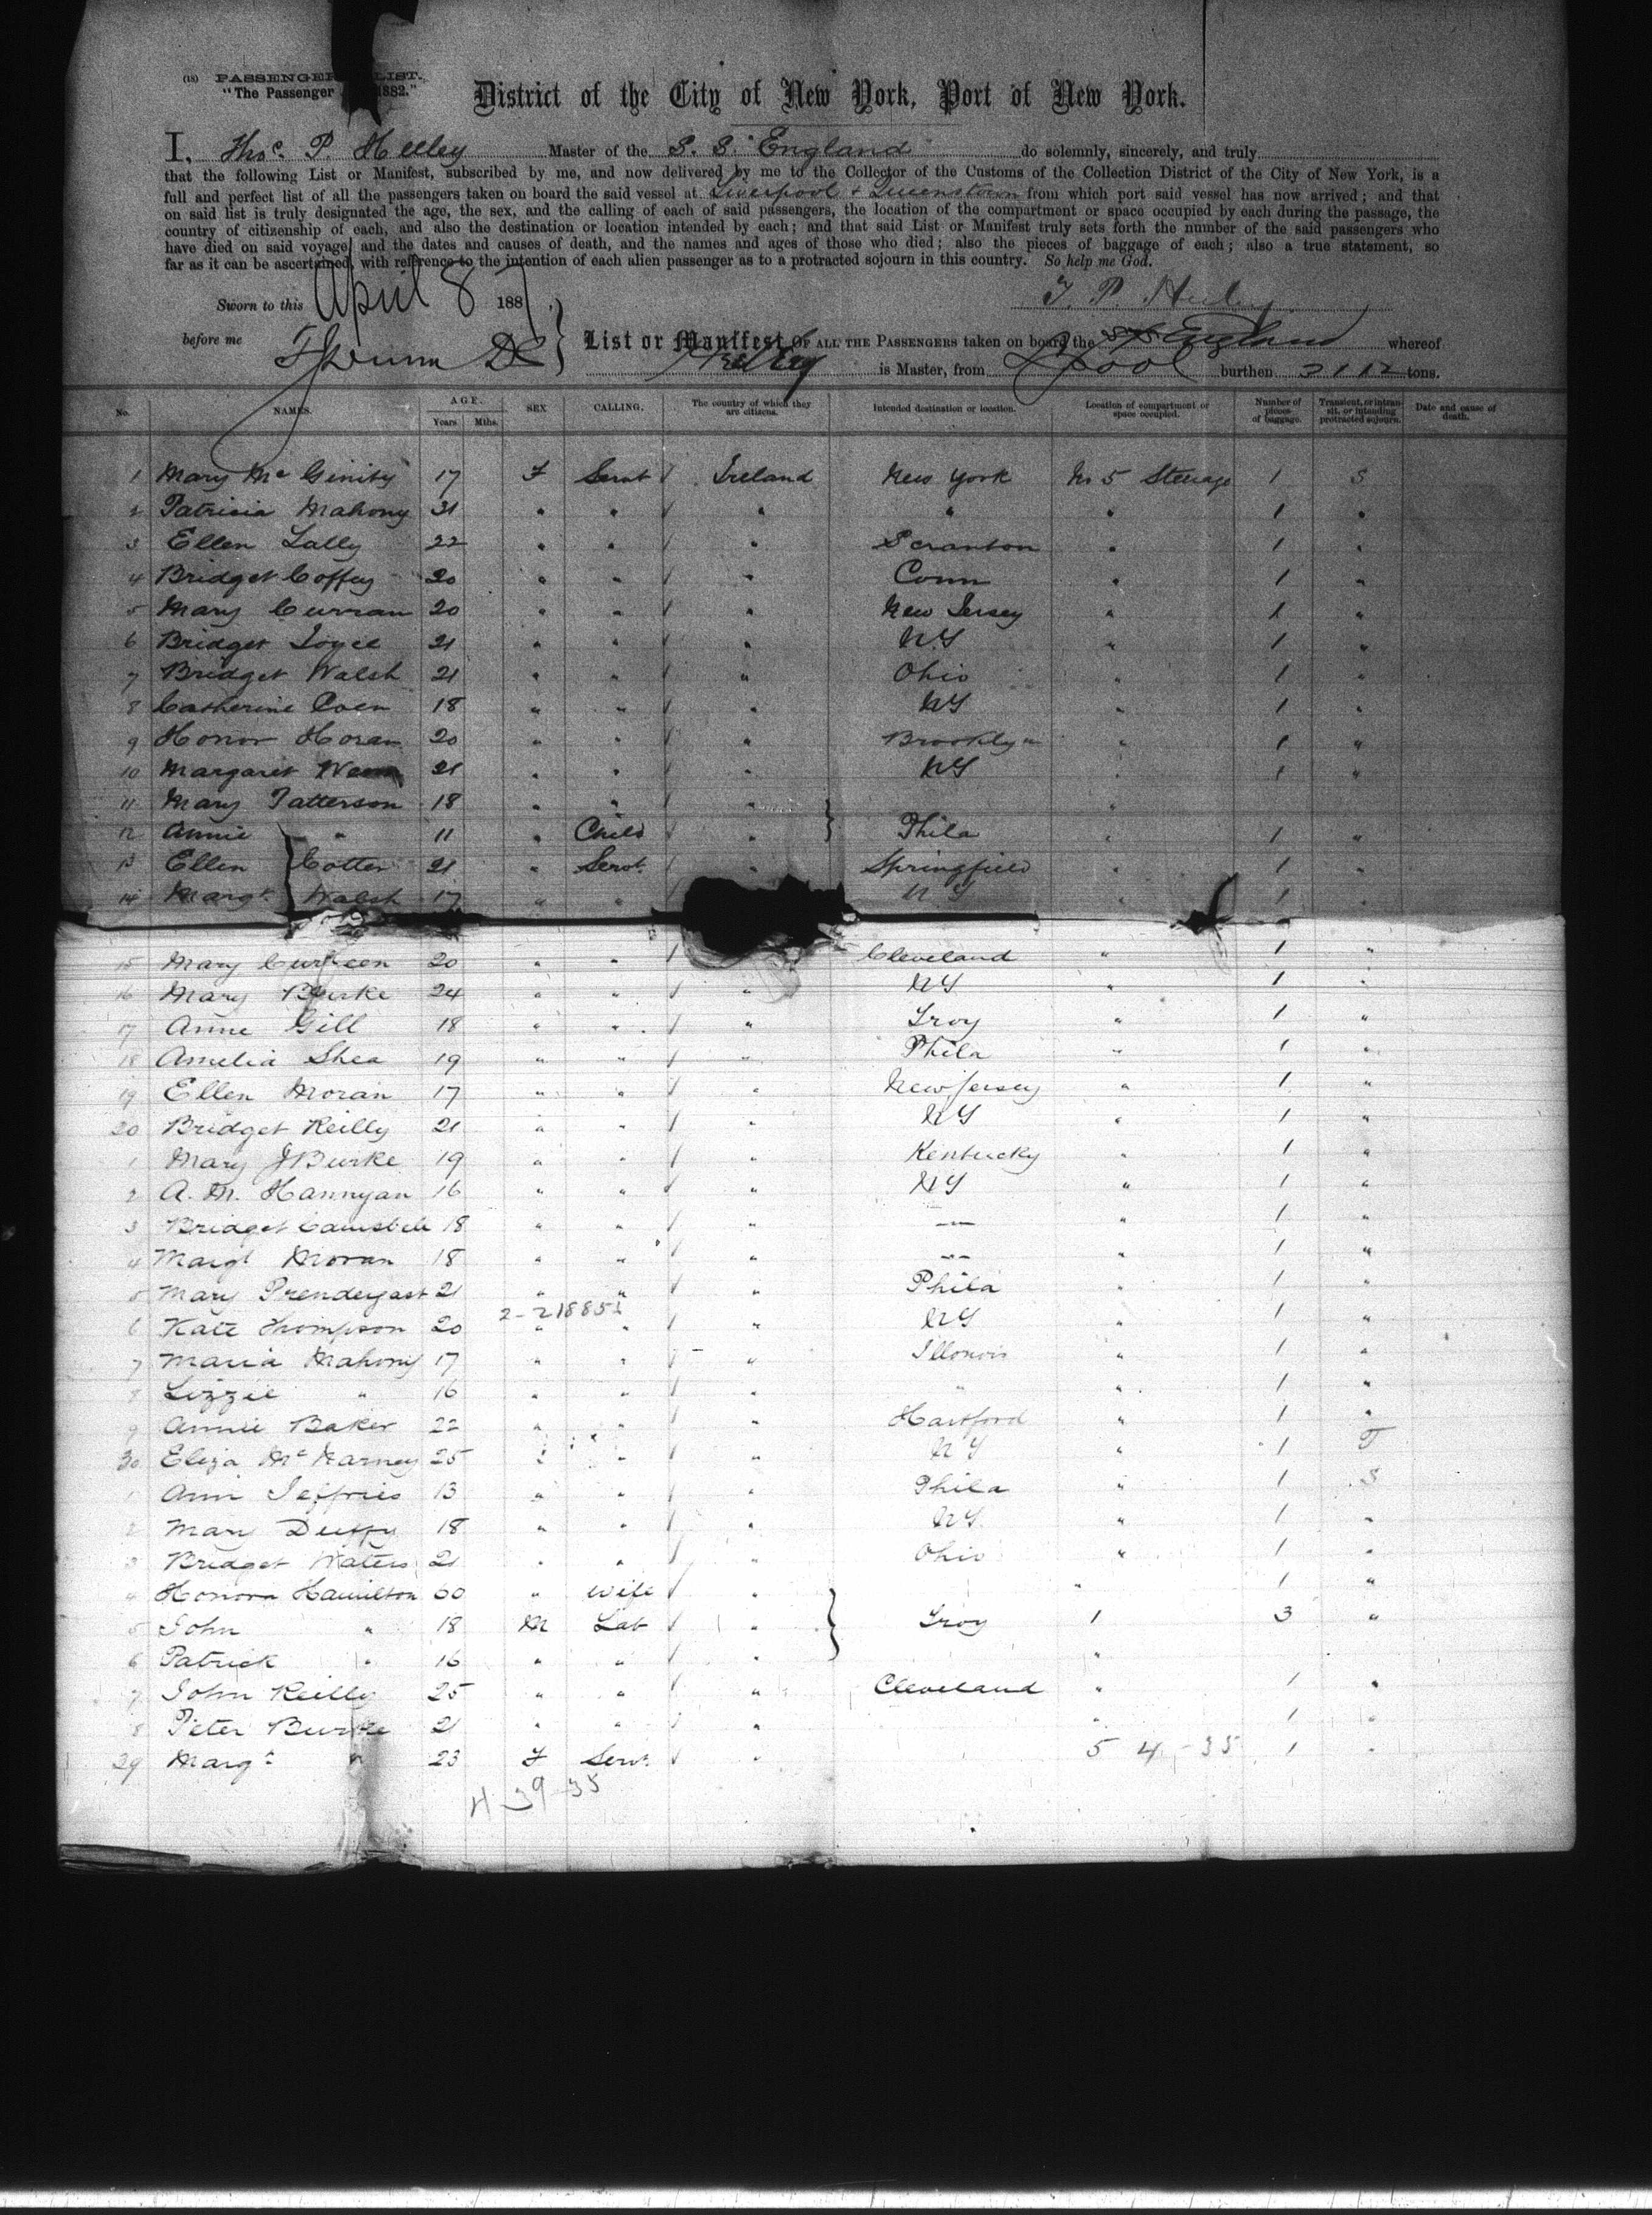 (18) PASSENGER LIST.
"The Passenger 1882."
District of the City of New York, Port of New York.
I, Thos. P. Heeley Master of the S. S. "England" do solemnly, sincerely, and truly
that the following List or Manifest, subscribed by me, and now delivered by me to the Collector of the Customs of the Collection District of the City of New York, is a
full and perfect list of all the passengers taken on board the said vessel at Liverpool & Queenstown from which port said vessel has now arrived; and that
on said list is truly designated the age, the sex, and the calling of each of said passengers, the location of the compartment or space occupied by each during the passage, the
country of citizenship of each, and also the destination or location intended by each; and that said List or Manifest truly sets forth the number of the said passengers who
have died on said voyage, and the dates and causes of death, and the names and ages of those who died; also the pieces of baggage of each; also a true statement, so
far as it can be ascertained, with reference to the intention of each alien passenger as to a protracted sojourn in this country. So help me God.
Sworn to this April 8 1887, T. P. Heeley
before me List or Manifest OF ALL THE PASSENGERS taken on board the SS England whereof
Heeley is Master, from L'pool burthen tons.
No. NAMES. AGE. Years Mths. SEX CALLING. The country of which they are citizens. Intended destination or location. Location of compartment or space occupied. Number of pieces of baggage. Transient, or in transit, or intending protracted sojourn. Date and cause of death.
1 Mary McGinity 17 F Servt / Ireland New York No 5 Steerage 1 S
2 Patricia Mahony 31 " " / " " " 1 "
3 Ellen Lally 22 " " / " Scranton " 1 "
4 Bridget Coffey 20 " " / " Conn " 1 "
5 Mary Curran 20 " " / " New Jersey " 1 "
6 Bridget Joyce 21 " " / " N.Y " 1 "
7 Bridget Walsh 21 " " / " Ohio " 1 "
8 Catherine Coen 18 " " / " NY " 1 "
9 Honor Horan 20 " " / " Brooklyn " 1 "
10 Margaret 21 " " / " NY " 1 "
11 Mary Patterson 18 " " / " "
12 Annie " 11 " Child / " } Phila " 1 "
13 Ellen Cotter 21 " Servt. / " Springfield " 1 "
14 Margt. Walsh 17 " " NY " 1 "
15 Mary 20 " " / Cleveland " 1 "
16 Mary Burke 24 " " / " NY " 1 "
17 Anne Gill 18 " " / " Troy " 1 "
18 Amelia Shea 19 " " / " Phila " 1 "
19 Ellen Moran 17 " " / " New Jersey " 1 "
20 Bridget Reilly 21 " " / " NY " 1 "
1 Mary J Burke 19 " " / " Kentucky " 1 "
2 A. M. Hannyan 16 " " / " NY " 1 "
3 Bridget Campbell 18 " " / " — " 1 "
4 Margt Moran 18 " " / " — " 1 "
5 Mary Prendergast 21 " " / " Phila " 1 "
2-218851
6 Kate Thompson 20 " " / " NY " 1 "
7 Maria Mahony 17 " " / " Illonois " 1 "
8 Lizzie " 16 " " / " " " 1 "
9 Annie Baker 22 " " / " Hartford " 1 "
30 Eliza McNarney 25 " " / " NY " 1 T
1 Ann Jeffries 13 " " / " Phila " 1 S
2 Mary Duffy 18 " " / " NY. " 1 "
3 Bridget Waters 21 " " / " Ohio " 1 "
4 Honora Hamilton 60 " Wife / " " 1 "
5 John " 18 M Lab / " } Troy 1 3 "
6 Patrick " 16 " " / " "
7 John Reilly 25 " " / " Cleveland " 1 "
8 Peter Burke 21 " " / " " 1 "
39 Margt " 23 F Servt. / " 5 4 - 35 1 "
4 39 35